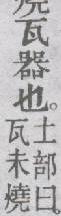 瓦器也。
土部曰
瓦未燒